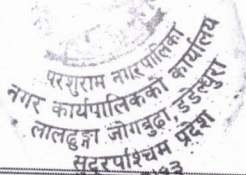 परशुराम नगरपालिका
नगर कार्यपालिकाको कार्यालय
लालढुङ्गा जोगबुढा, डडेल्धुरा
सुदूरपश्चिम प्रदेश